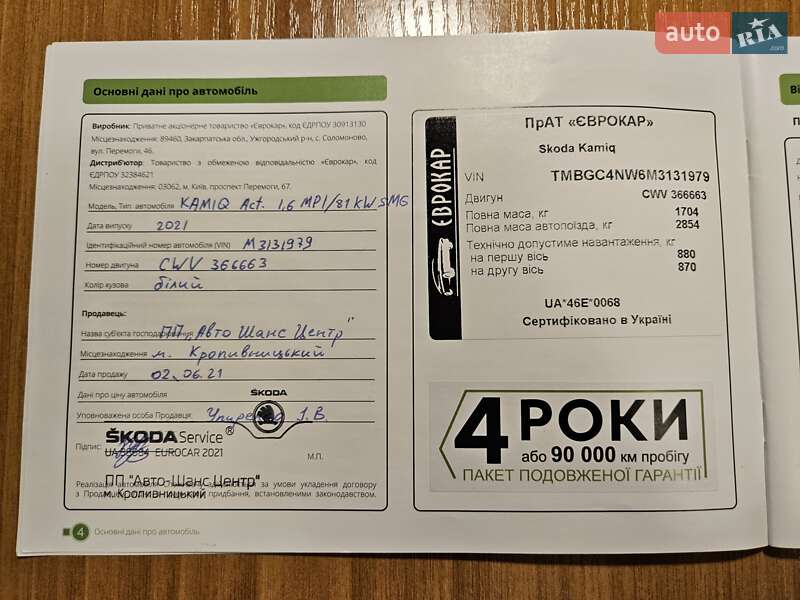 auto RIA .com
Основні дані про автомобіль
Виробник: Приватне акціонерне товариство «Єврокар», код ЄДРПОУ 30913130
Місцезнаходження: 89460, Закарпатська обл., Ужгородський р-н, с. Соломоново,
вул. Перемоги, 46.
Дистриб'ютор: Товариство з обмеженою відповідальністю «Єврокар», код
ЄДРПОУ 32384621
Місцезнаходження: 03062, м. Київ, проспект Перемоги, 67.
Модель, Тип автомобіля KAMIQ Act. 1,6 MPI/81 kW 5MG
Дата випуску 2021
Ідентифікаційний номер автомобіля (VIN) M3131979
Номер двигуна CWV 366663
Колір кузова білий
Продавець:
Назва суб'єкта господарювання ПП „Авто Шанс Центр"
Місцезнаходження м. Кропивницький
Дата продажу 02.06.21
Дані про ціну автомобіля
ŠKODA
Уповноважена особа Продавця: І.В.
ŠKODA Service®
Підпис:
EUROCAR 2021
М.П.
ПП "Авто-Шанс Центр"
Реалізація за умови укладення договору
м. Кропивницький
придбання, встановленими законодавством.
4 Основні дані про автомобіль
ЄВРОКАР
ПрАТ «ЄВРОКАР»
Skoda Kamiq
VIN TMBGC4NW6M3131979
Двигун CWV 366663
Повна маса, кг 1704
Повна маса автопоїзда, кг 2854
Технічно допустиме навантаження, кг
на першу вісь 880
на другу вісь 870
UA*46E*0068
Сертифіковано в Україні
4 РОКИ
або 90 000 км пробігу
ПАКЕТ ПОДОВЖЕНОЇ ГАРАНТІЇ